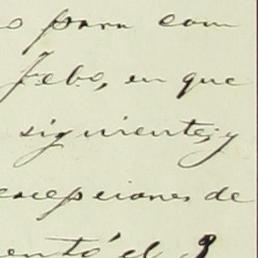 o para com
Jebo, en que
siguiente; y
excepciones de
entó el 9